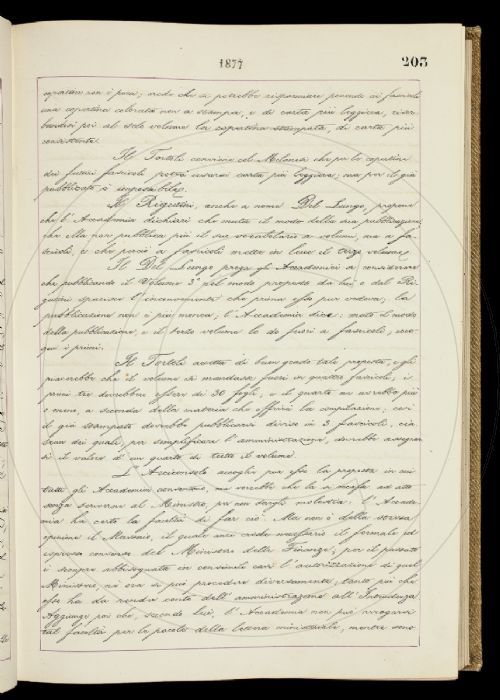 1877
203
copertine non è poca; credo che si potrebbe risparmiare ponendo ai fascicoli
una copertina colorata non a stampa, e di carta più leggiera, riser-
bandosi poi al solo volume la copertina stampata, di carta più
consistente.
Il Tortoli conviene col Milanesi che per le copertine
dei futuri fascicoli potrà usarsi carta più leggiera; ma per il già
pubblicato è impossibile.
Il Rigutini, anche a nome Del Lungo, propone
che l'Accademia dichiari che muta il modo della sua pubblicazione,
che ella non pubblica più il suo vocabolario a volumi, ma a fa-
scicoli, e che perciò a fascicoli mette in luce il terzo volume.
Il Del Lungo prega gli Accademici a considerare
che pubblicando il Volume 3° nel modo proposto da lui e dal Ri-
gutini sparisce l'inconveniente che prima essi poi vedeva; la
pubblicazione non è più monca; l'Accademia dice: muto il modo
della pubblicazione, e il terzo volume lo do fuori a fascicoli, ecco-
qui i primi.
Il Tortoli accetta di buon grado tale proposta, e gli
piacerebbe che il volume si mandasse fuori in quattro fascicoli; i
primi tre dovrebbero essere di 30 fogli, e il quarto ne avrebbe più
o meno, a seconda della materia che offrirà la compilazione; così
il già stampato dovrebbe pubblicarsi diviso in 3 fascicoli, cia-
scun dei quali, per semplificare l'amministrazione, dovrebbe assegnar-
si il valore d'un quarto di tutto il volume.
L'Arciconsolo accoglie per esso la proposta in cui
tutti gli Accademici convennero, ma vorrebbe che la si recasse ad atto
senza scriverne al Ministro, per non dargli molestia: l'Accade-
mia ha certo la facoltà di far ciò. Ma non è della stessa
opinione il Massaio, il quale anzi crede necessario il formale ed
espresso consenso del Ministero delle Finanze, per il passato
è sempre abbisognata in consimile caso l'autorizzazione di quel
Ministero, nè ora si può procedere diversamente, tanto più che
esso ha da render conto dell'amministrazione all'Intendenza
Aggiunge poi che, secondo lui, l'Accademia non può arrogarsi
tal facoltà per le parole della lettera ministeriale, mentre sono